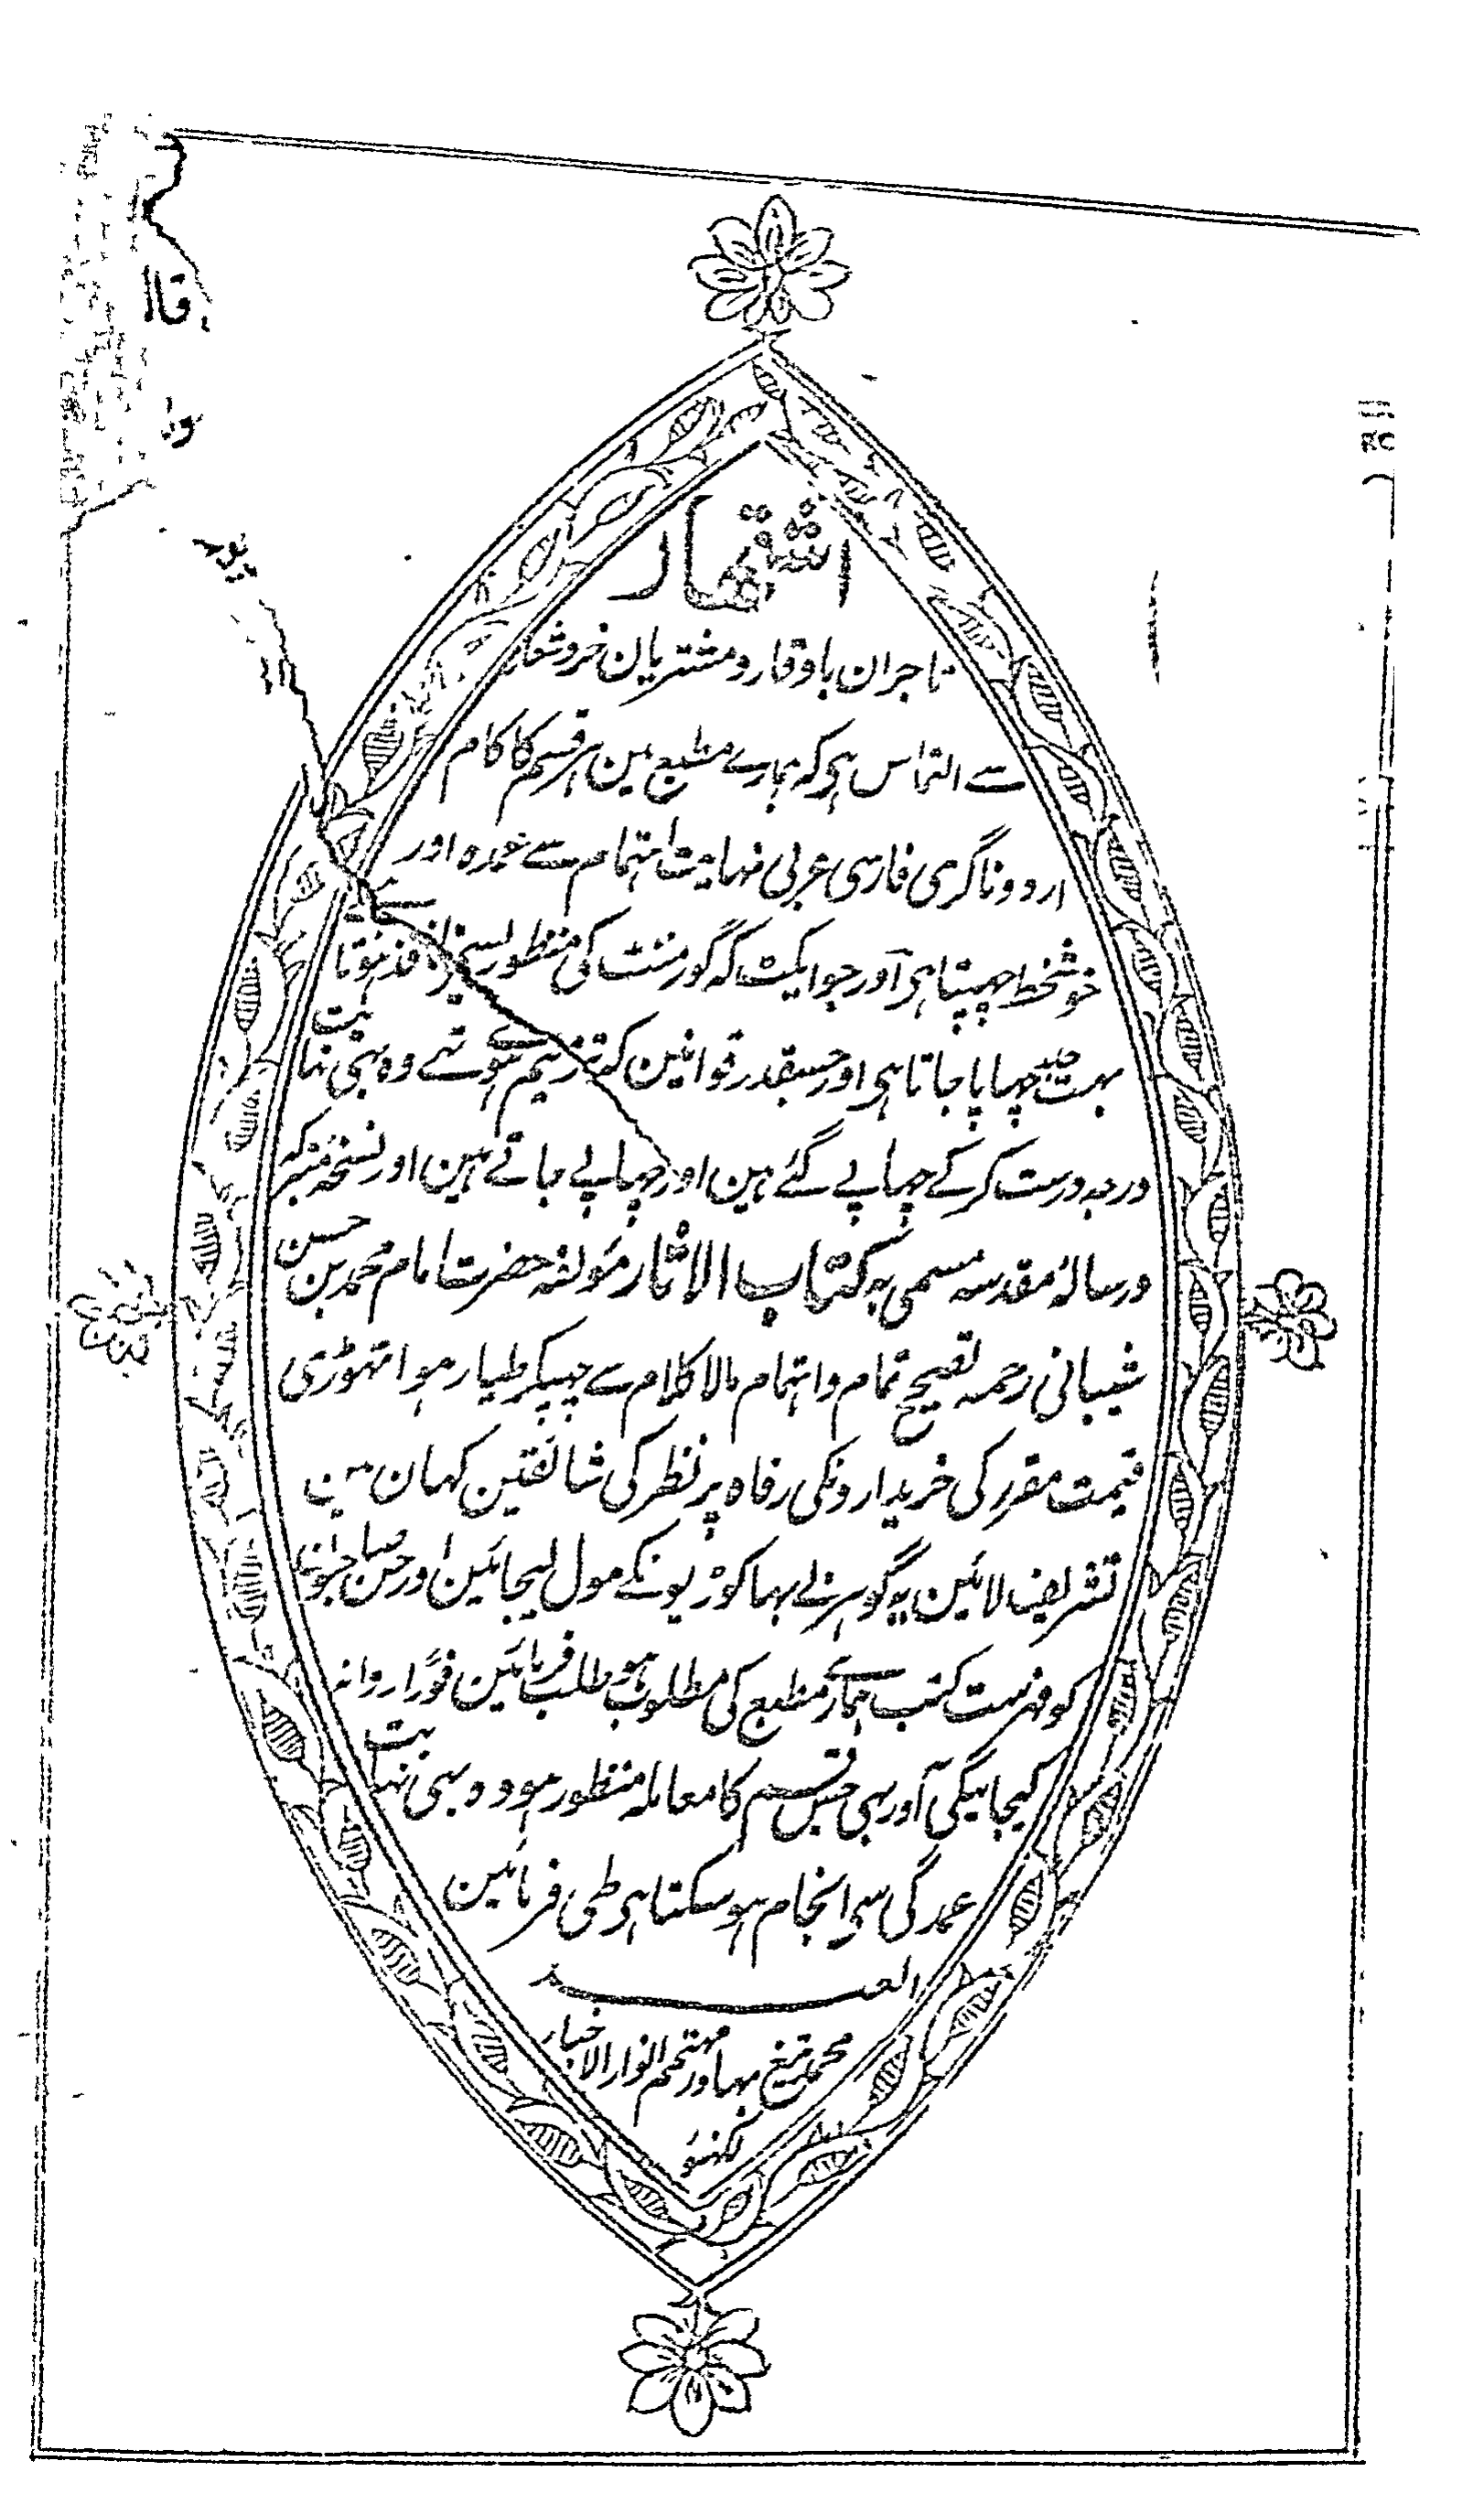 اشتہار
تاجران باوقار و مشتریان خردشعار
سے التماس ہی کہ ہمارے مطبع مین ہر قسم کا کام
اردو ناگری فارسی عربی نہایت اہتمام سے عمدہ اور
خوشخط چھپتا ہی آور جو ایکٹ کہ گورمنٹ کی منظوری سے نافذ ہوتا ہے
بہت جلد چہاپا جاتا ہی اور جسقدر قوانین کہ ترمیم ہوئے تہے وہ بہی نہایت
درجہ درست کر کے چہاپے گئے ہین اور چہاپے جاتے ہین اور نسخہ متبرکہ
ورسالۂ مقدسہ مسمی بہ کتاب الاثار مؤلفہ حضرت امام محمد بن حسن
شیبانی رحمہ تصحیح تمام واہتمام مالا کلام سے چہپکر طیار ہوا تہوڑی
قیمت مقرر کی خریدارونکی رفاہ پر نظر کی شائقین کہان ہین
تشریف لائین یہ گوہر بے بہا کوڑیونکے مول لیجائین اور جن صاحبونکو
کو فہرست کتب ہمارے مطبع کی مطلوب ہو طلب فرمائین فوراً روانہ
کیجائیگی آور بہی جس قسم کا معاملہ منظور ہو وہ بہی نہایت
عمدگی سی انجام ہو سکتا ہی طی فرمائین
العبد
محمد تیغ بہادر مہتمم انوار الاخبار
لکہنؤ